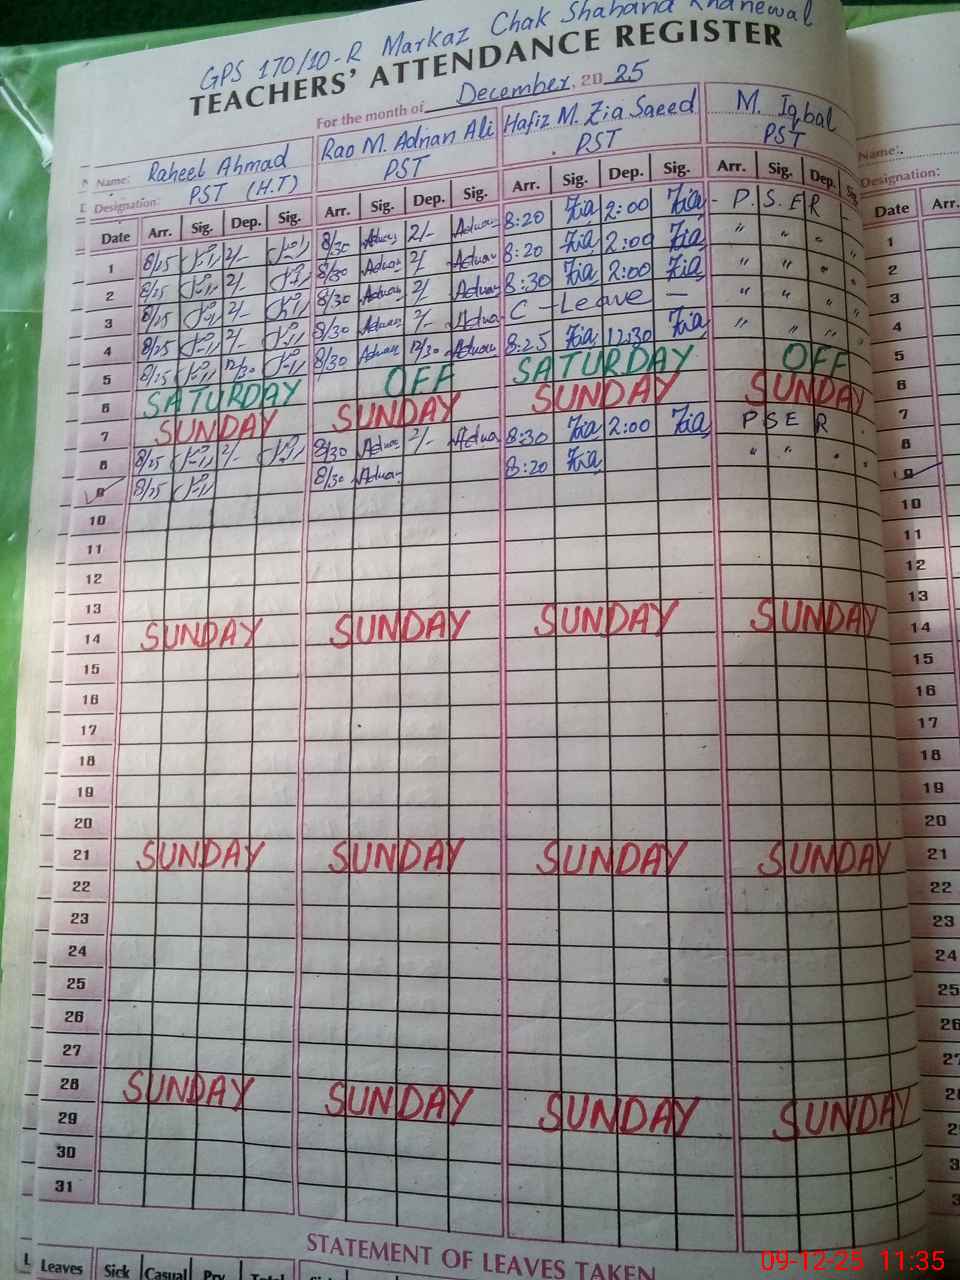 GPS 170/10-R Markaz Chak Shahana Khanewal
TEACHERS' ATTENDANCE REGISTER
For the month of December, 20 25
Name: Raheel Ahmad Rao M. Adnan Ali Hafiz M. Zia Saeed M. Iqbal Name:
Designation: PST (H.T) PST PST PST Designation:
Date Arr. Sig. Dep. Sig. Arr. Sig. Dep. Sig. Arr. Sig. Dep. Sig. Arr. Sig. Dep. Date Arr.
1 8/25 2/- 8/30 Adnan 2/- Adnan 8:20 Zia 2:00 Zia - P.S.E R - 1
2 8/25 2/- 8/30 Adnan 2/ Adnan 8:20 Zia 2:00 Zia " " " " 2
3 8/25 2/- 8/30 Adnan 2/ Adnan 8:30 Zia 2:00 Zia " " " " 3
4 8/25 2/- 8/30 Adnan 2/- Adnan C - Leave - " " " " 4
5 8/25 12/30 8/30 Adnan 12/30 Adnan 8:25 Zia 12:30 Zia " " " " 5
6 SATURDAY OFF SATURDAY OFF 6
7 SUNDAY SUNDAY SUNDAY SUNDAY 7
8 8/25 2/- 8/30 Adnan 2/- Adnan 8:30 Zia 2:00 Zia P S E R 8
9 8/25 8/30 Adnan 8:20 Zia " " " " 9
10 10
11 11
12 12
13 13
14 SUNDAY SUNDAY SUNDAY SUNDAY 14
15 15
16 16
17 17
18 18
19 19
20 20
21 SUNDAY SUNDAY SUNDAY SUNDAY 21
22 22
23 23
24 24
25 25
26 26
27 27
28 SUNDAY SUNDAY SUNDAY SUNDAY
29
30
31
STATEMENT OF LEAVES TAKEN
Leaves Sick Casual Prv Total
09-12-25 11:35